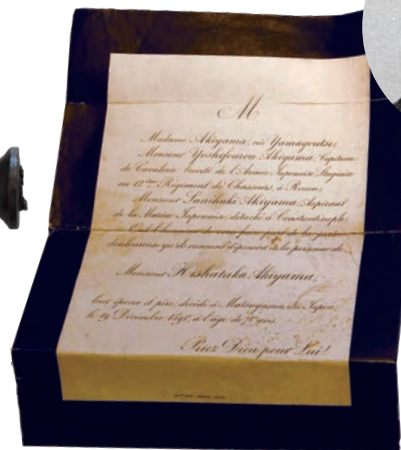 M
Madame Akiyama, née Yamagoutsi;
Monsieur Yoshifourou Akiyama, Capitaine
de Cavalerie breveté de l'Armée Japonaise Stagiaire
au 12ème Régiment de Chasseurs, à Rouen;
Monsieur Saniuki Akiyama, Aspirant
de la Marine Japonaise détaché à Constantinople,
Ont l'honneur de vous faire part de la perte
douloureuse qu'ils viennent d'éprouver en la personne de
Monsieur Hishataka Akiyama,
leur époux et père, décédé à Matsuyama du Japon,
le 19 Décembre à l'âge de ans.
Priez Dieu pour Lui!